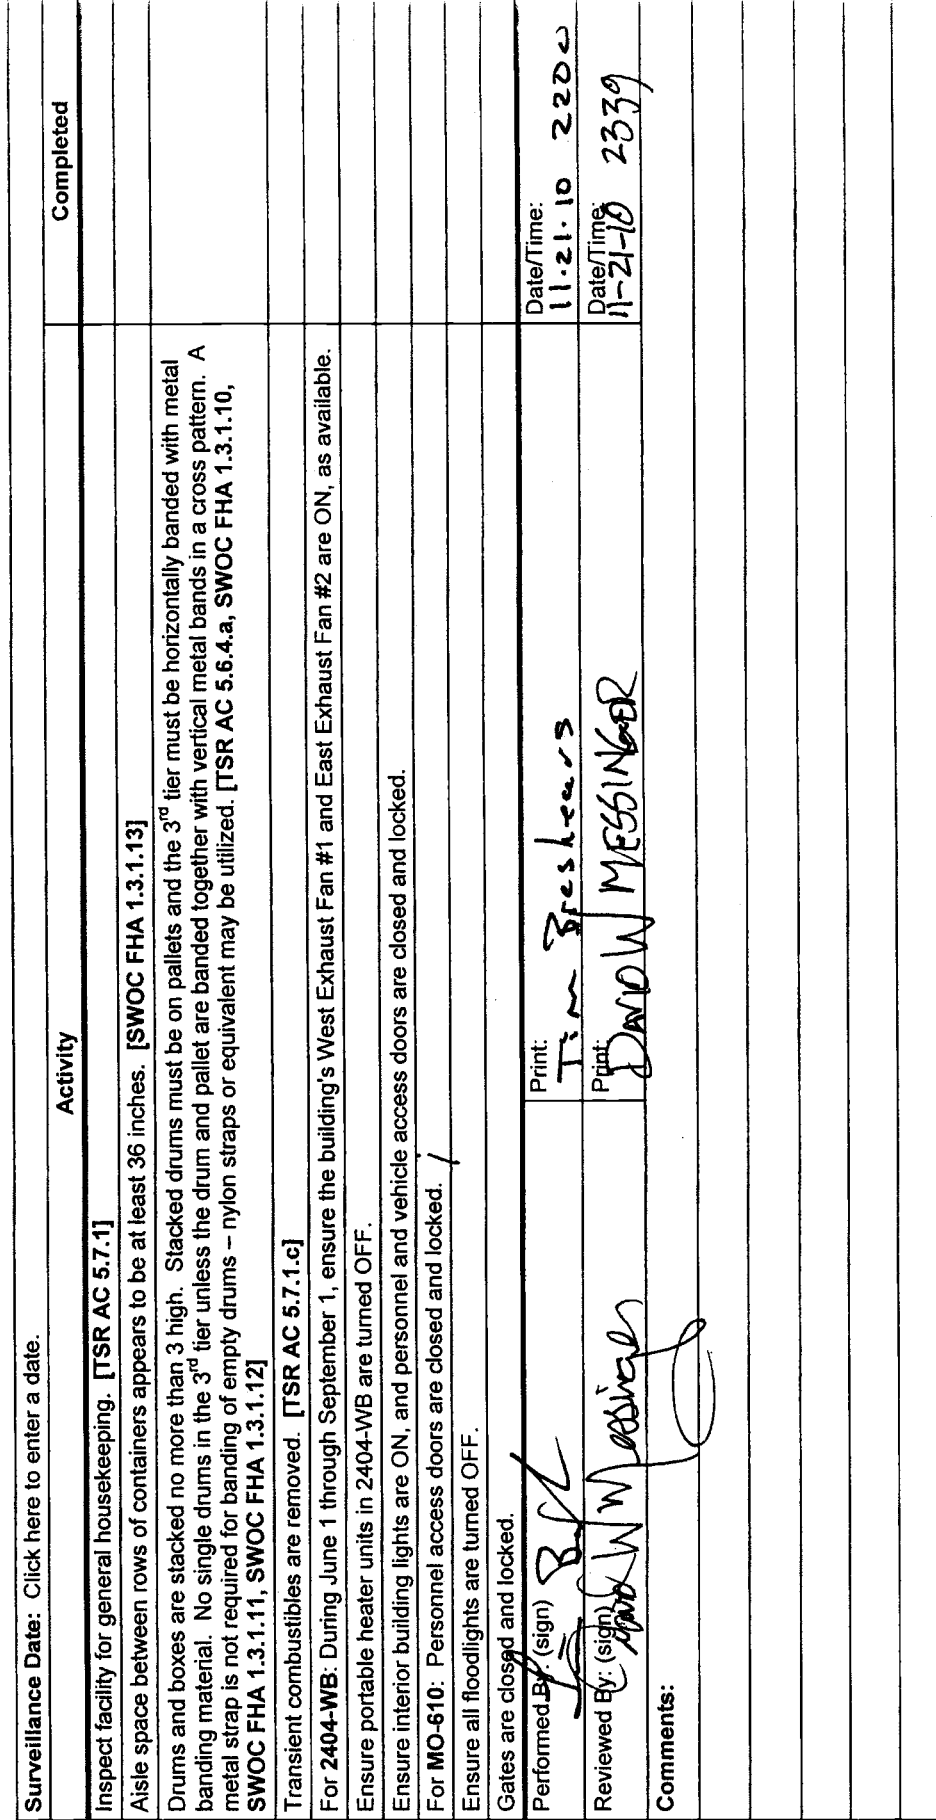 Surveillance Date: Click here to enter a date.
Activity
Completed
Inspect facility for general housekeeping. [TSR AC 5.7.1]
Aisle space between rows of containers appears to be at least 36 inches. [SWOC FHA 1.3.1.13]
Drums and boxes are stacked no more than 3 high. Stacked drums must be on pallets and the 3rd tier must be horizontally banded with metal
banding material. No single drums in the 3rd tier unless the drum and pallet are banded together with vertical metal bands in a cross pattern. A
metal strap is not required for banding of empty drums – nylon straps or equivalent may be utilized. [TSR AC 5.6.4.a, SWOC FHA 1.3.1.10,
SWOC FHA 1.3.1.11, SWOC FHA 1.3.1.12]
Transient combustibles are removed. [TSR AC 5.7.1.c]
For 2404-WB: During June 1 through September 1, ensure the building's West Exhaust Fan #1 and East Exhaust Fan #2 are ON, as available.
Ensure portable heater units in 2404-WB are turned OFF.
Ensure interior building lights are ON, and personnel and vehicle access doors are closed and locked.
For MO-610: Personnel access doors are closed and locked.
Ensure all floodlights are turned OFF.
Gates are closed and locked.
Performed By: (sign)
Print:
Tim Breshears
Date/Time:
11.21.10 2200
Reviewed By: (sign)
David W Messinger
Print:
DAVID W MESSINGER
Date/Time:
11-21-10 2339
Comments: